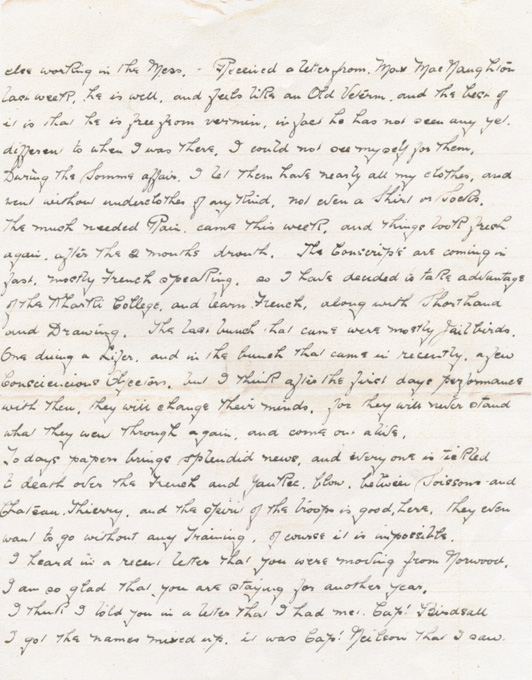 else working in the Mess. - Received a letter from Max MacNaughton
last week, he is well, and feels like an Old Veterm, and the best of
it is that he is free from vermin, in fact he has not seen any yet.
different to when I was there, I could not see myself for them,
During the Somme affair, I let them have nearly all my clothes, and
went without underclothes of any kind, not even a Shirt or Socks.
The much needed Rain came this week, and things look fresh
again, after the 2 months drouth. The Conscripts are coming in
fast, mostly French speaking, so I have decided to take advantage
of the Kharki College, and learn French, along with Shorthand
and Drawing. The last bunch that came were mostly Jailbirds,
One doing a Lifer, and in the bunch that came in recently, a few
Consciencious Objectors, but I think after the first days performance
with them, they will change their minds, for they will never stand
what they went through again, and come out alive,
Todays papers brings splendid news, and everyone is tickled
to death over the French and Yankee blow, between Soissons and
Chateau Thierry, and the Spirit of the troops is good, here, they even
want to go without any Training, of course it is impossible.
I heard in a recent letter that you were moving from Norwood,
I am so glad that you are staying for another year,
I think I told you in a letter that I had met Capt Birdsall
I got the names mixed up, it was Capt Neilson that I saw.